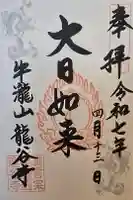 奉拝
令和七年
四月十三日
大日如来
牛瀧山
龍谷寺